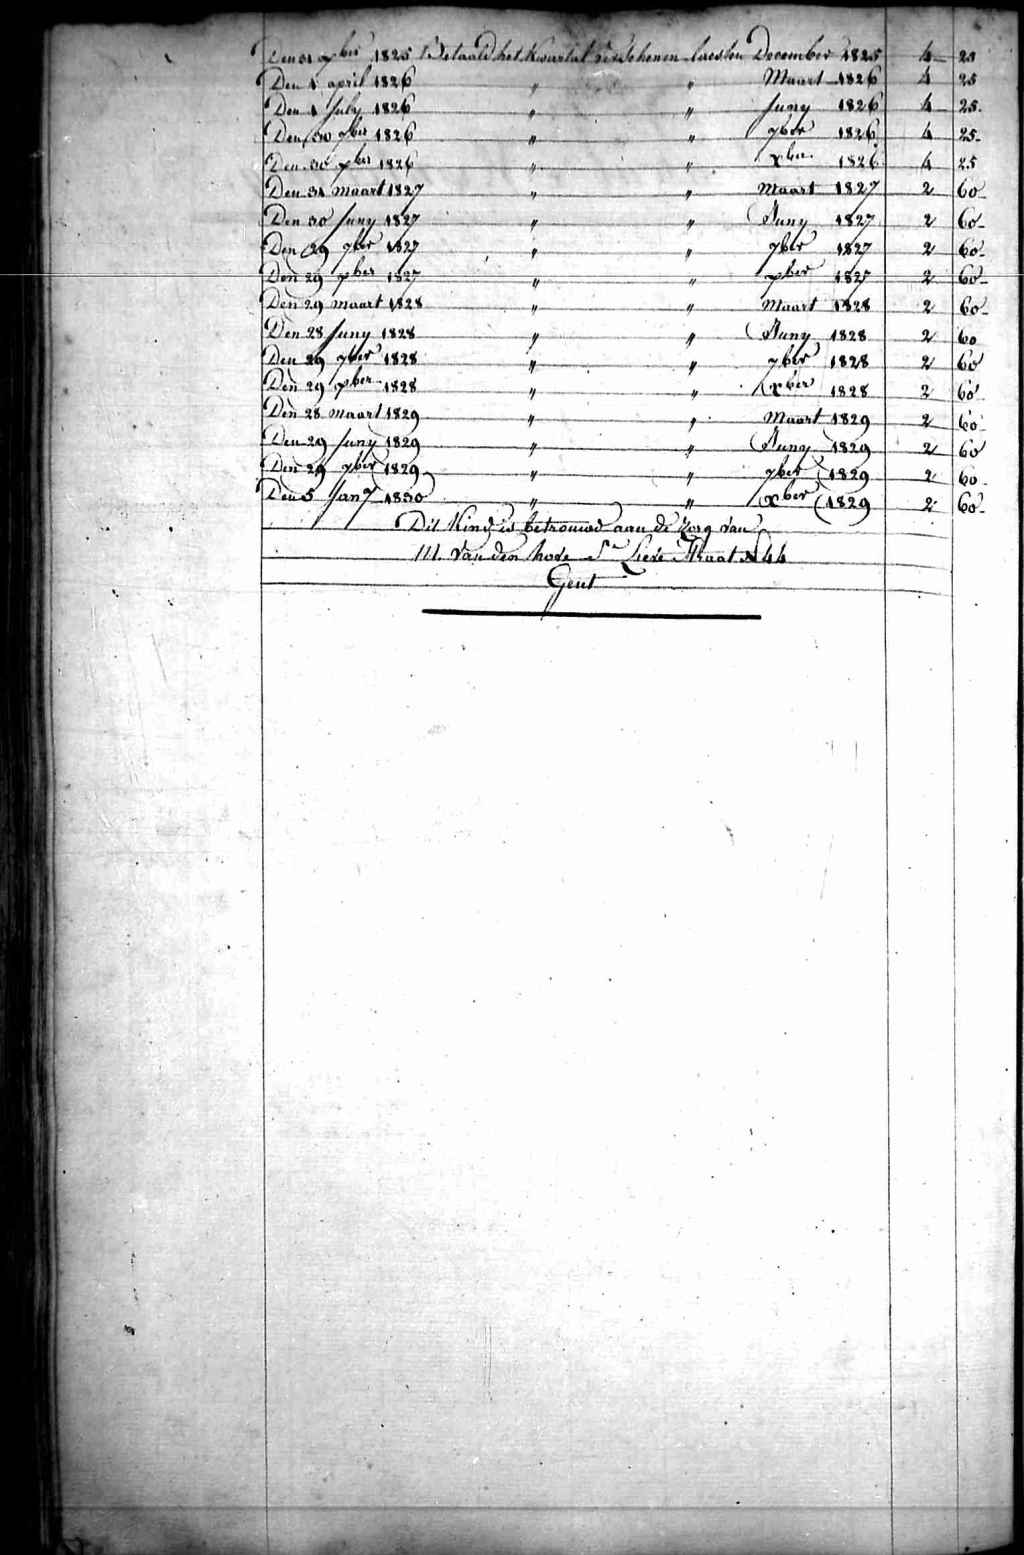 Den 31 xber 1825 Betaald het Kwartal verschenen laesten December 1825 4 25
Den 1 april 1826 " " Maart 1826 4 25
Den 1 July 1826 " " Juny 1826 4 25
Den 30 7ber 1826 " " 7ber 1826 4 25
Den 30 xber 1826 " " xber 1826 4 25
Den 31 maart 1827 " " Maart 1827 2 60
Den 30 Juny 1827 " " Juny 1827 2 60
Den 29 7ber 1827 " " 7ber 1827 2 60
Den 29 xber 1827 " " xber 1827 2 60
Den 29 maart 1828 " " Maart 1828 2 60
Den 28 Juny 1828 " " Juny 1828 2 60
Den 29 7ber 1828 " " 7ber 1828 2 60
Den 29 xber 1828 " " xber 1828 2 60
Den 28 maart 1829 " " Maart 1829 2 60
Den 29 Juny 1829 " " Juny 1829 2 60
Den 29 7ber 1829 " " 7ber 1829 2 60
Den 5 Jany 1830 " " xber 1829 2 60
Dit Kind is betrouwd aan de Zorg van
van den hove Ste Lieve Straat N 44
Gent